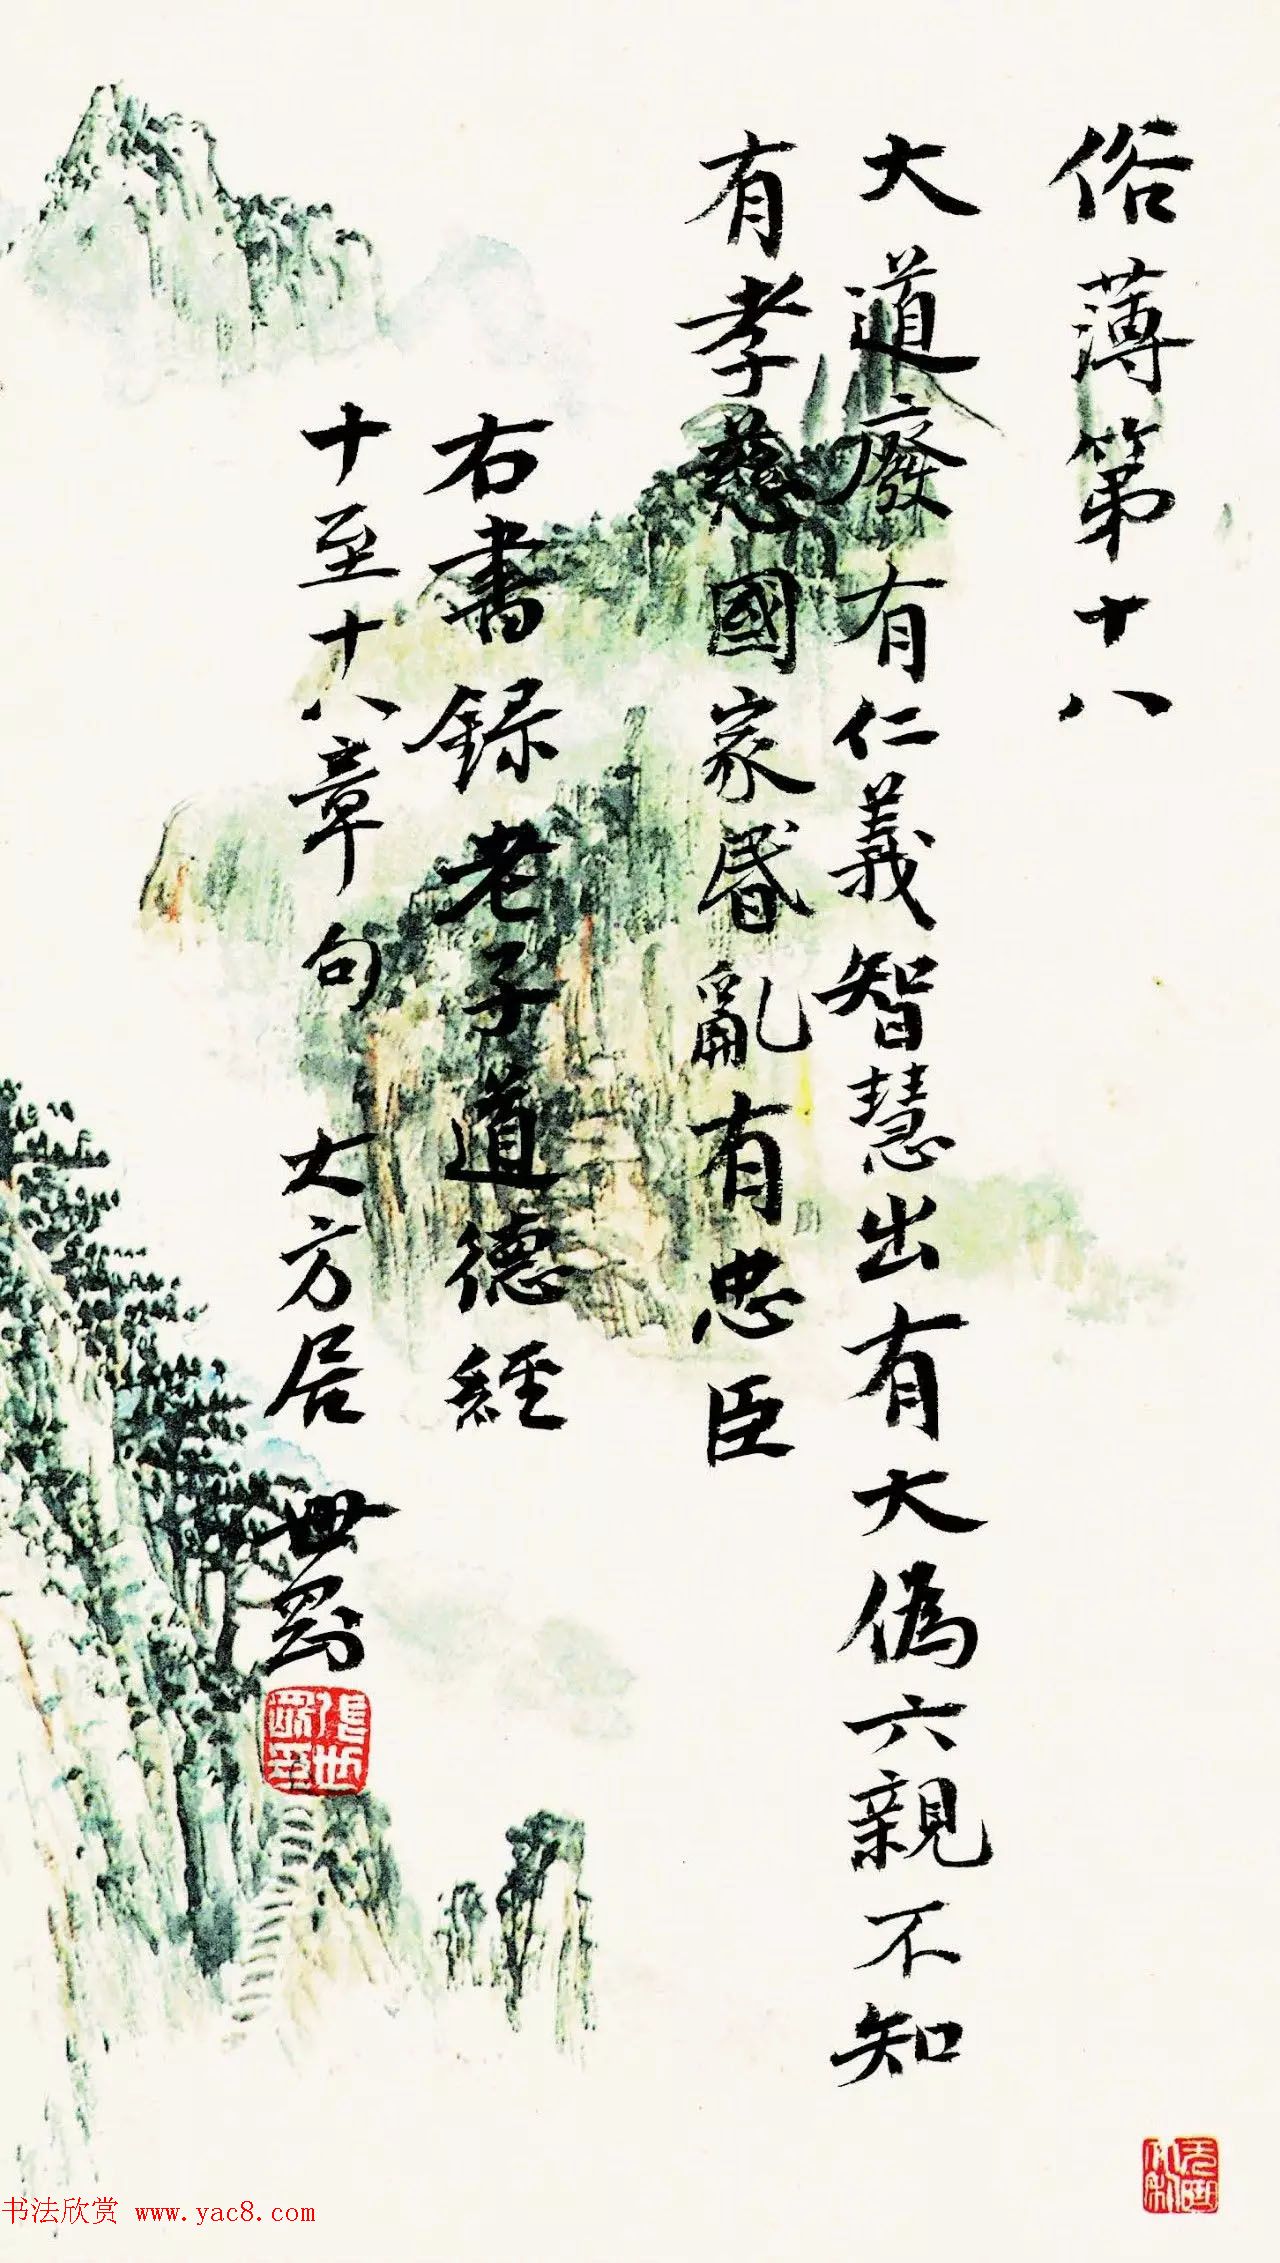 俗薄第十八
大道廢有仁義智慧出有大偽六親不知
有孝慈國家昬亂有忠臣
右書錄老子道德經
十至十八章句 大方居 世剛
張世剛印
书法欣赏 www.yac8.com